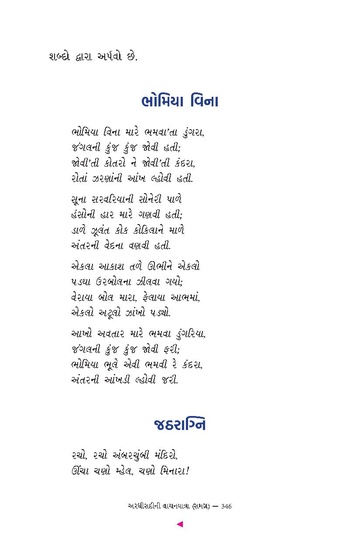 શબ્દો દ્વારા અર્પવો છે.
ભોમિયા વિના
ભોમિયા વિના મારે ભમવા'તા ડુંગરા,
જંગલની કુંજ કુંજ જોવી હતી;
જોવી'તી કોતરો ને જોવી'તી કંદરા,
રોતાં ઝરણાંની આંખ લ્હોવી હતી.
સૂના સરવરિયાની સોનેરી પાળે
હંસોની હાર મારે ગણવી હતી;
ડાળે ઝૂલંત કોક કોકિલાને માળે
અંતરની વેદના વણવી હતી.
એકલા આકાશ તળે ઊભીને એકલો
પડઘા ઉરબોલના ઝીલવા ગયો;
વેરાયા બોલ મારા, ફેલાયા આભમાં,
એકલો અટૂલો ઝાંખો પડ્યો.
આખો અવતાર મારે ભમવા ડુંગરિયા,
જંગલની કુંજ કુંજ જોવી ફરી;
ભોમિયા ભૂલે એવી ભમવી રે કંદરા,
અંતરની આંખડી લ્હોવી જરી.
જઠરાગ્નિ
રચો, રચો અંબરચુંબી મંદિરો,
ઊંચા ચણો મ્હેલ, ચણો મિનારા!
અરધીસદીની વાચનયાત્રા (સમગ્ર) — 346